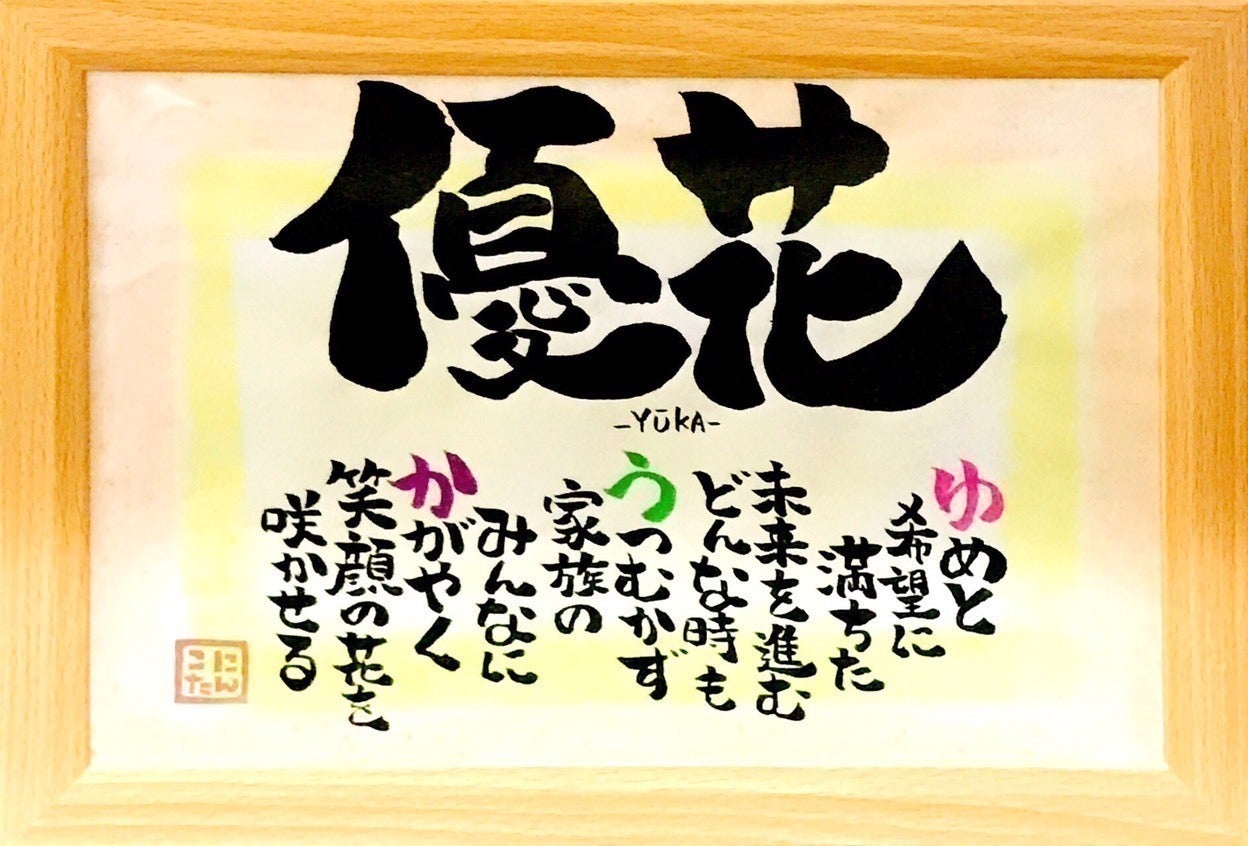 優花
-YŪKA-
ゆめと
希望に
満ちた
未来を進む
どんな時も
うつむかず
家族の
みんなに
かがやく
笑顔の花を
咲かせる
にん
こた